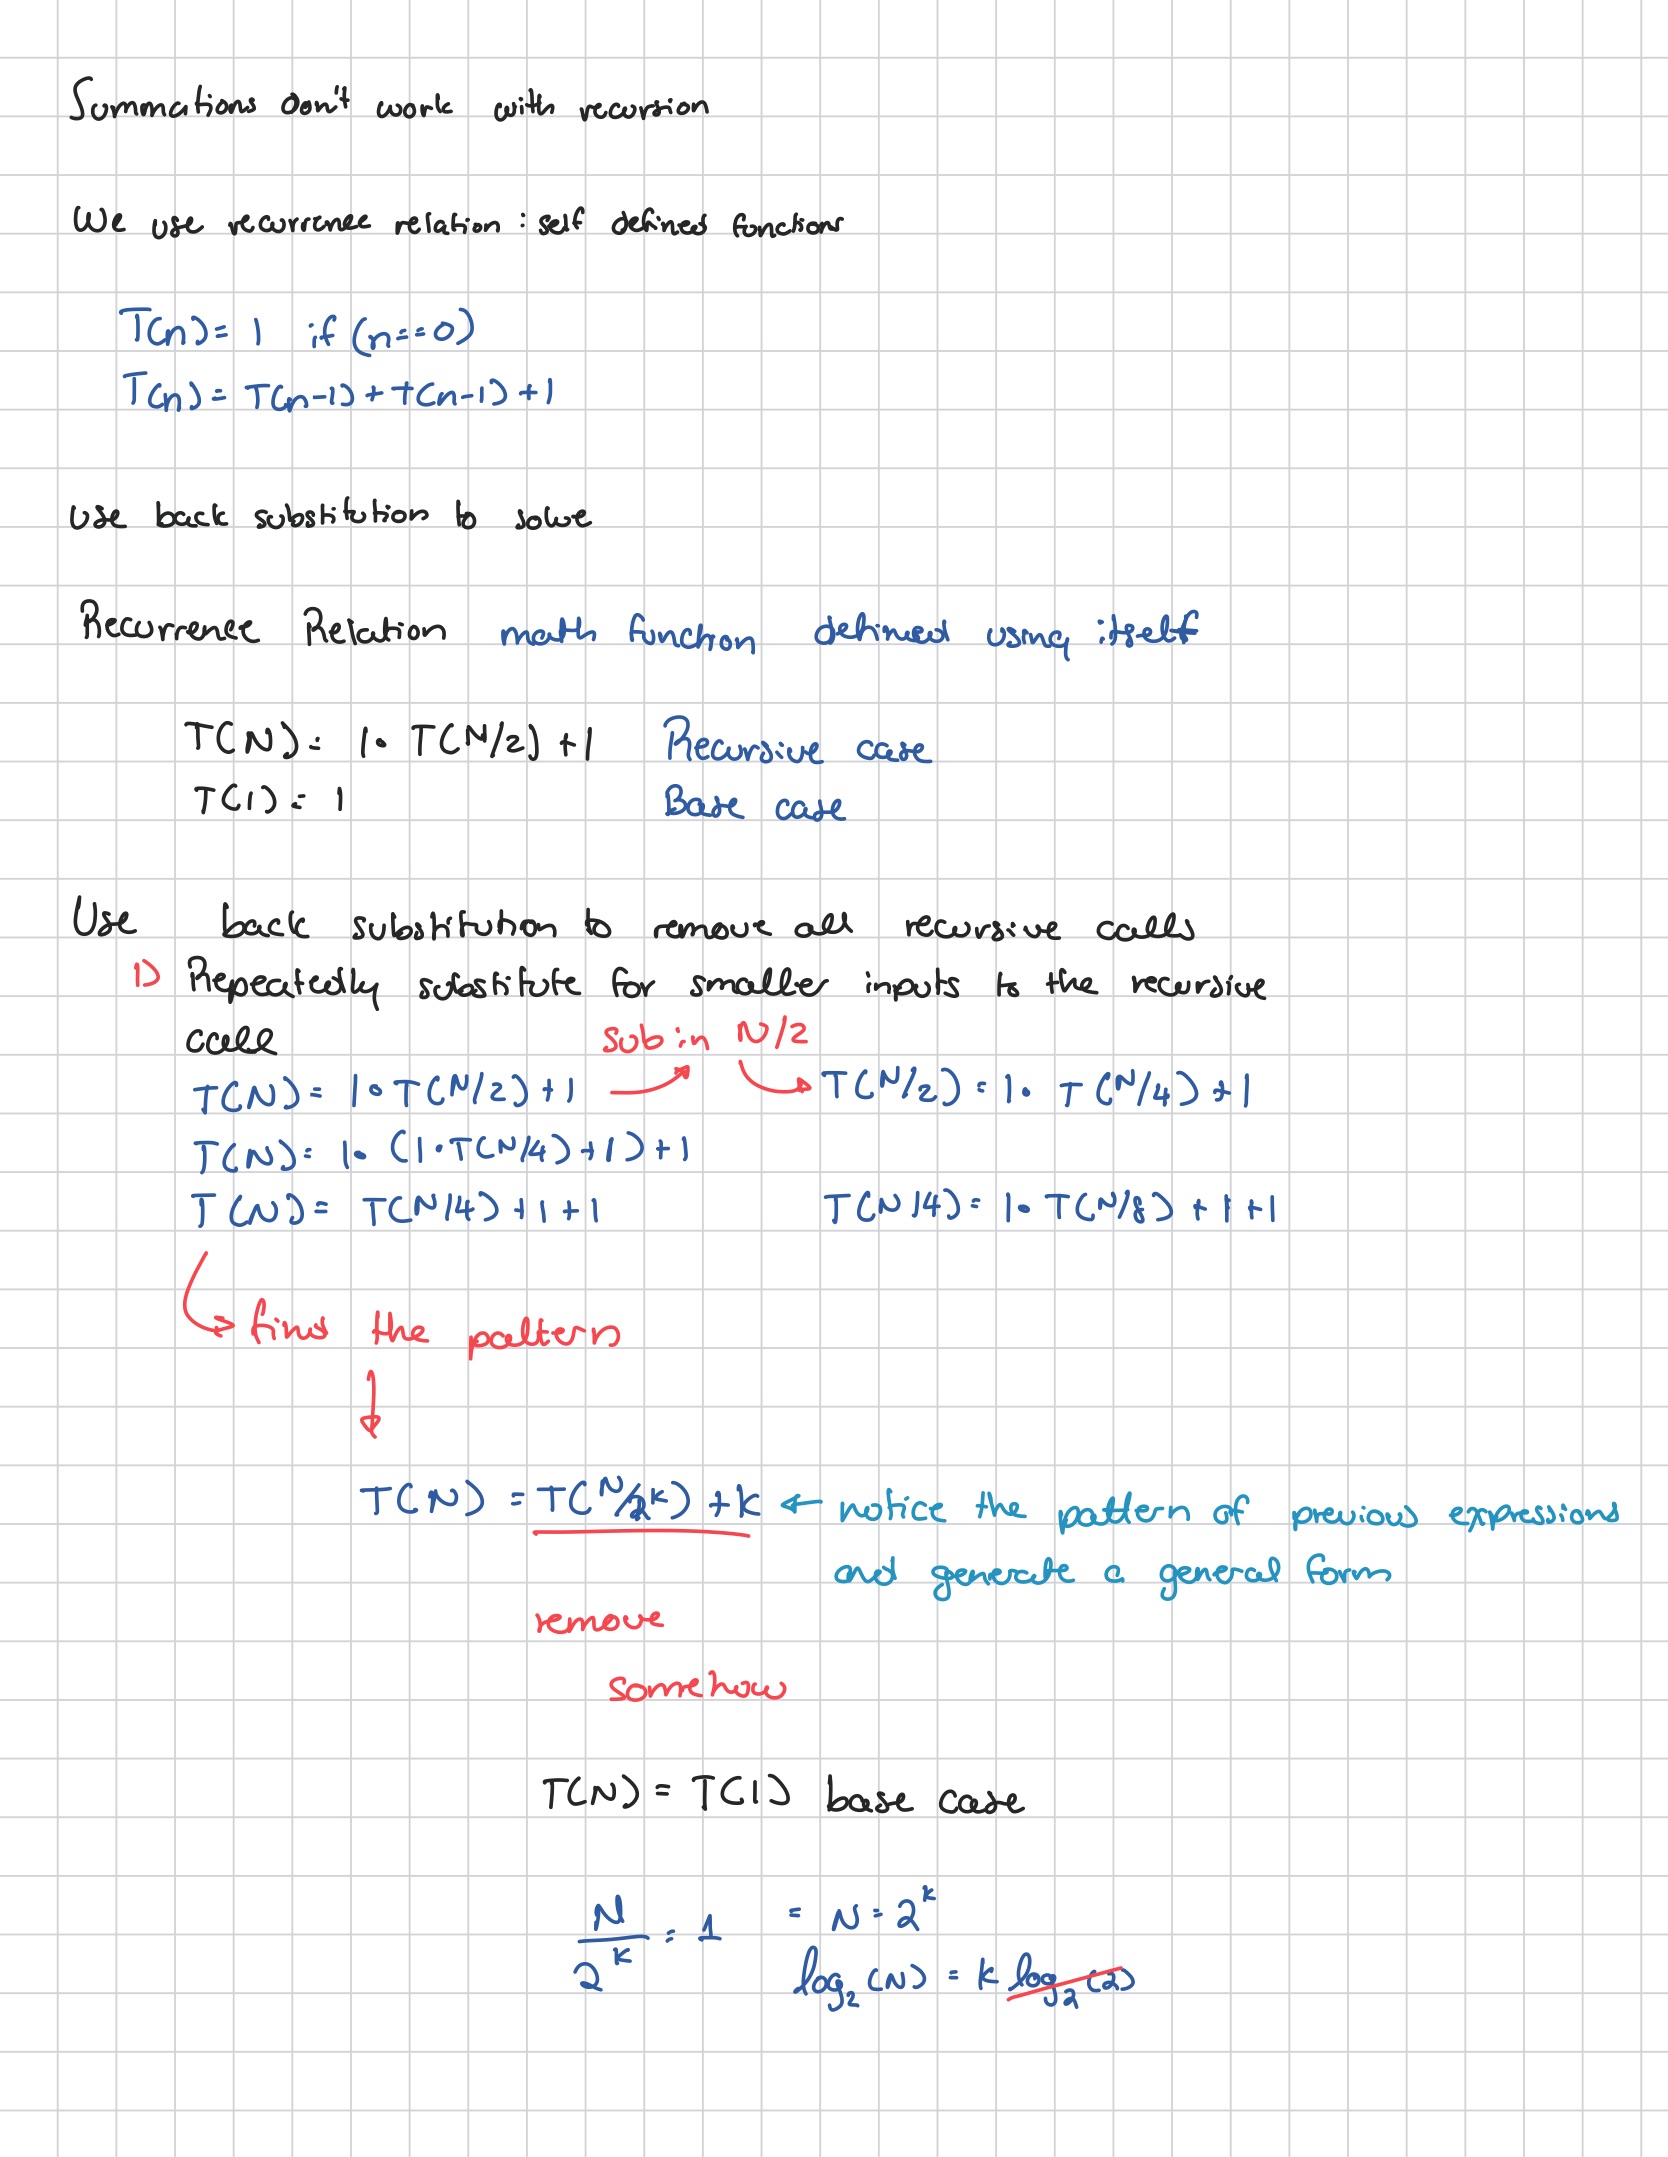 Summations don't work with recursion
We use recurrence relation : self defined functions
T(n) = 1 if (n==0)
T(n) = T(n-1) + T(n-1) + 1
use back substitution to solve
Recurrence Relation math function defined using itself
T(N) = 1• T(N/2) + 1 Recursive case
T(1) = 1 Base case
Use back substitution to remove all recursive calls
1) Repeatedly substitute for smaller inputs to the recursive
call sub in N/2
T(N) = 1• T(N/2) + 1 → T(N/2) = 1• T(N/4) + 1
T(N) = 1• (1•T(N/4) + 1) + 1
T(N) = T(N/4) + 1 + 1 T(N/4) = 1• T(N/8) + 1 + 1
→ find the pattern
↓
T(N) = T(N/2^k) + k ← notice the pattern of previous expressions
and generate a general form
remove
somehow
T(N) = T(1) base case
N/2^k = 1 = N = 2^k
log₂(N) = k log₂(2)